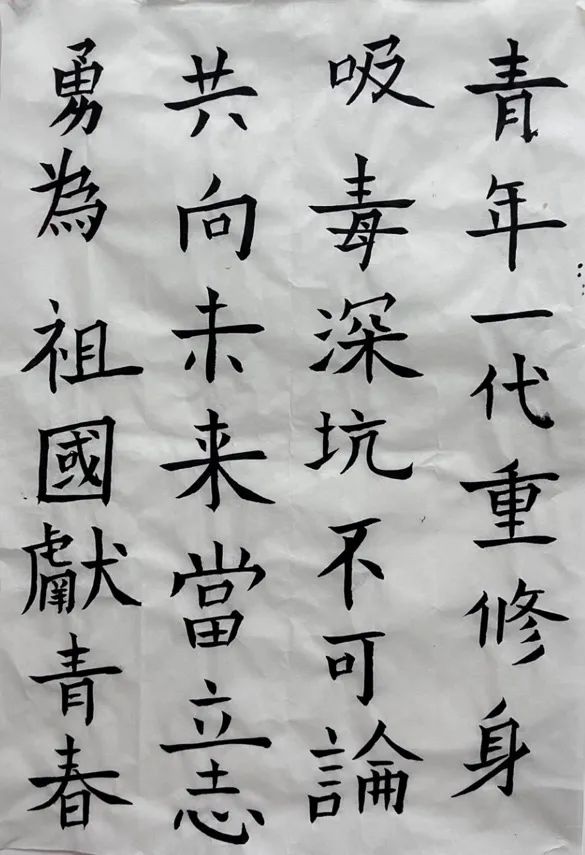 青年一代重修身
吸毒深坑不可論
共向未来當立志
勇為祖國獻青春